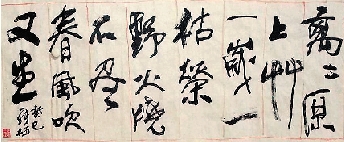 离〻原
上艸
一歲一
枯榮
野火燒
不盡
春風吹
又生